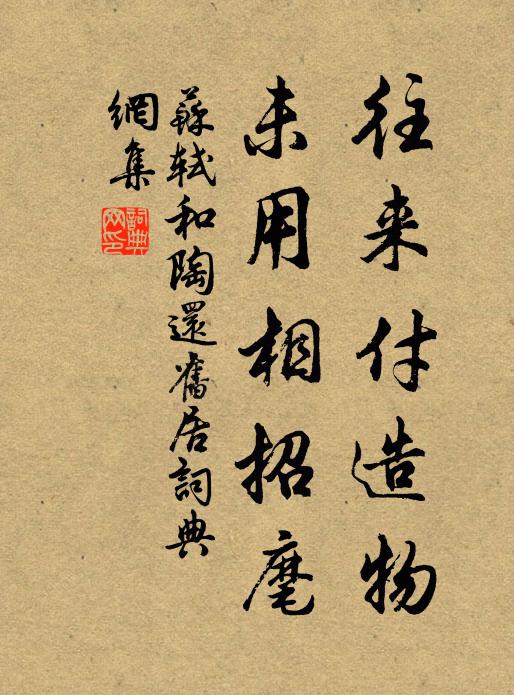 往来付造物
未用相招麾
蘇軾和陶還舊居詞典
網集
詞典網印